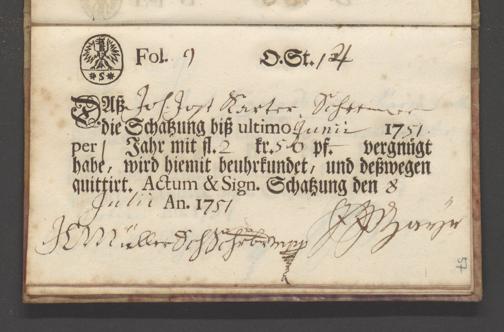 *S*
Fol. 9 O.St. 14
Daß Joh Jost Karter
die Schatzung biß ultimo Junii 1751.
per 1 Jahr mit fl. 2 kr. 56 pf. – vergnügt
habe, wird hiemit beuhrkundet, und deßwegen
quittirt. Actum & Sign. Schatzung den 8
Julii An. 1751
Müller
57